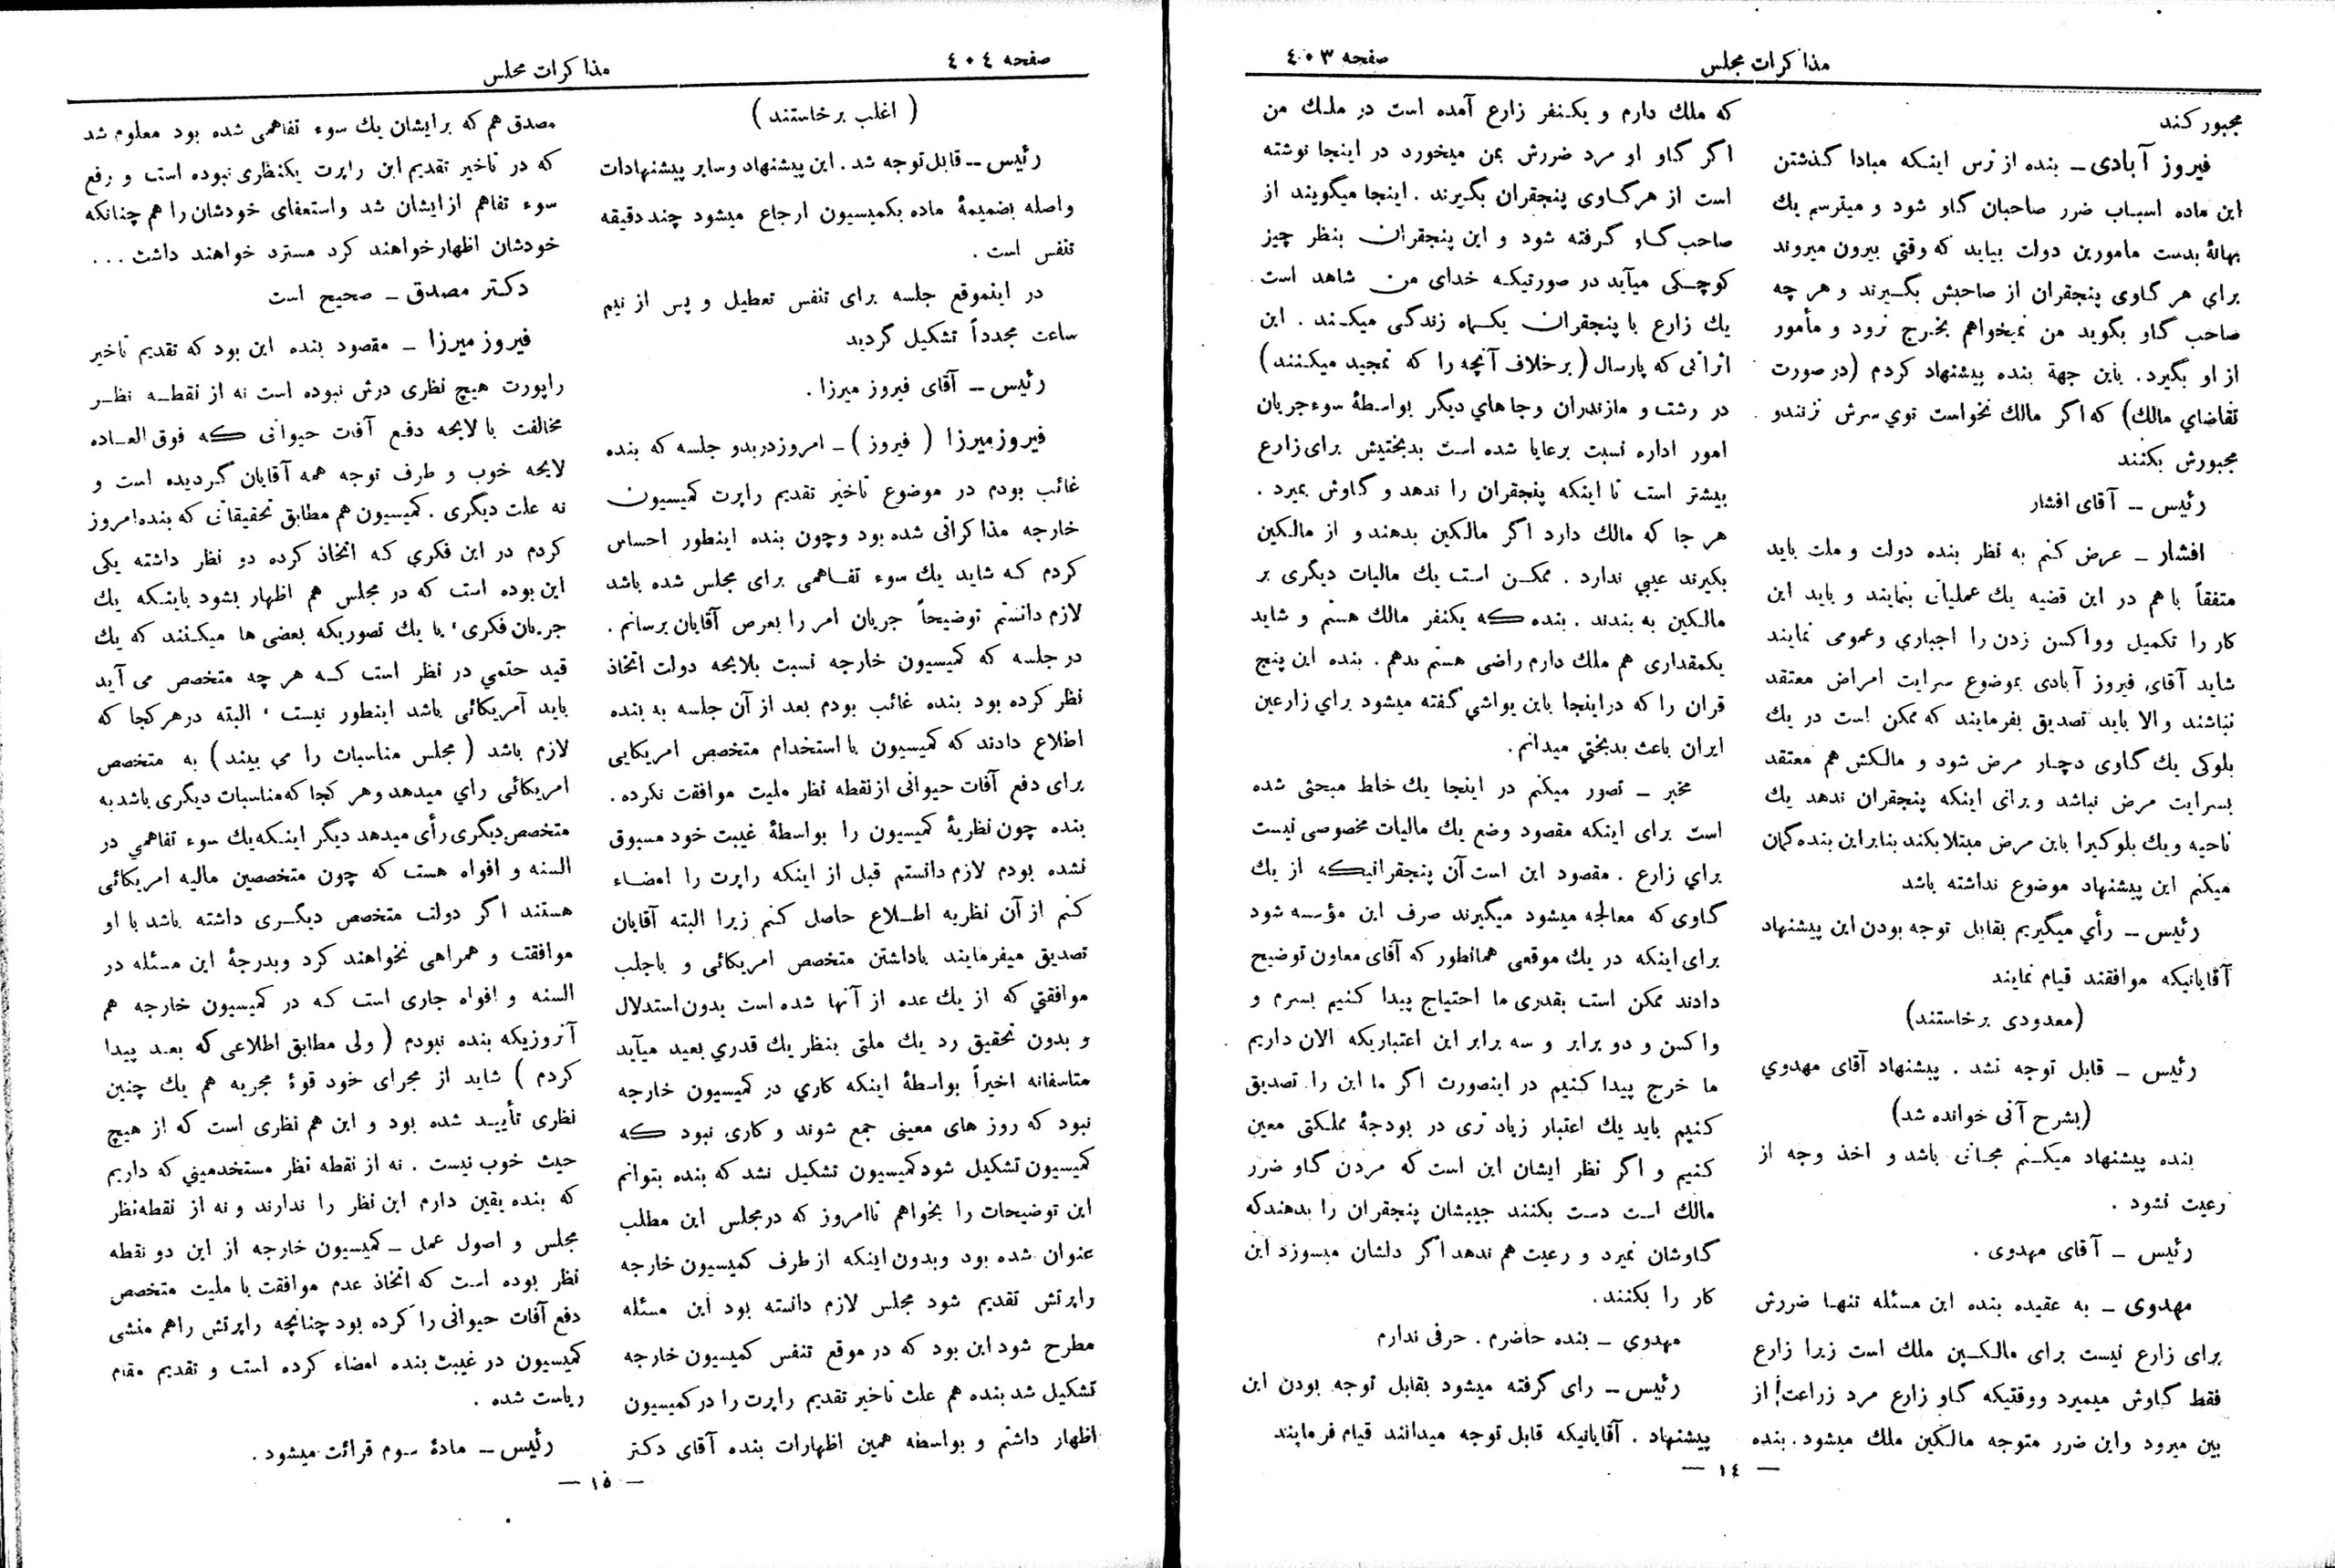 صفحه ٤٠٣
مذاکرات مجلس
مجبور کند
فیروز آبادی ــ بنده از ترس اینکه مبادا گذشتن
این ماده اسباب ضرر صاحبان گاو شود و میترسم یك
بهانهٔ بدست مامورین دولت بیاید که وقتي بیرون میروند
براي هر گاوی پنجقران از صاحبش بگیرند و هر چه
صاحب گاو بگوید من نمیخواهم بخرج نرود و مأمور
از او بگیرد. باین جهة بنده پیشنهاد کردم (در صورت
تقاضاي مالك) که اگر مالك نخواست توي سرش نزنندو
مجبورش بکنند
رئیس ــ آقای افشار
افشار ــ عرض کنم به نظر بنده دولت و ملت باید
متفقاً با هم در این قضیه یك عملیاتي بنمایند و باید این
کار را تکمیل وواکسن زدن را اجباري وعمومی نمایند
شاید آقای فیروز آبادی بموضوع سرایت امراض معتقد
نباشند والا باید تصدیق بفرمایند که ممکن است در یك
بلوکی یك گاوی دچار مرض شود و مالکش هم معتقد
بسرایت مرض نباشد و برای اینکه پنجقران ندهد یك
ناحیه ویك بلوکیرا باین مرض مبتلا بکند بنابراین بنده گمان
میکنم این پیشنهاد موضوع نداشته باشد
رئیس ــ رأي میگیریم بقابل توجه بودن این پیشنهاد
آقایانیکه موافقند قیام نمایند
(معدودی برخاستند)
رئیس ــ قابل توجه نشد . پیشنهاد آقای مهدوي
(بشرح آتی خوانده شد)
بنده پیشنهاد میکنم مجانی باشد و اخذ وجه از
رعیت نشود .
رئیس ــ آقای مهدوی .
مهدوی ــ به عقیده بنده این مسئله تنها ضررش
برای زارع نیست برای مالکین ملك است زیرا زارع
فقط گاوش میمیرد ووقتیکه گاو زارع مرد زراعت از
بین میرود واین ضرر متوجه مالکین ملك میشود. بنده
که ملك دارم و یکنفر زارع آمده است در ملك من
اگر گاو او مرد ضررش بمن میخورد در اینجا نوشته
است از هر گاوی پنجقران بگیرند . اینجا میگویند از
صاحب گاو گرفته شود و این پنجقران بنظر چیز
کوچکی میآید در صورتیکه خدای من شاهد است
یك زارع با پنجقران یکماه زندگی میکند . این
اثراتی که پارسال (برخلاف آنچه را که تمجید میکنند)
در رشت و مازندران وجاهاي دیگر بواسطهٔ سوء جریان
امور اداره نسبت برعایا شده است بدبختیش برای زارع
بیشتر است تا اینکه پنجقران را ندهد و گاوش بمیرد .
هر جا که مالك دارد اگر مالکین بدهند و از مالکین
بگیرند عیبي ندارد . ممکن است یك مالیات دیگری بر
مالکین به بندند . بنده که یکنفر مالك هستم و شاید
یکمقداری هم ملك دارم راضی هستم بدهم . بنده این پنج
قران را که دراینجا باین یواشي گفته میشود براي زارعین
ایران باعث بدبختي میدانم.
مخبر ــ تصور میکنم در اینجا یك خلط مبحثی شده
است برای اینکه مقصود وضع یك مالیات مخصوصی نیست
براي زارع . مقصود این است آن پنجقرانیکه از یك
گاوی که معالجه میشود میگیرند صرف این مؤسسه شود
برای اینکه در یك موقعی همانطور که آقای معاون توضیح
دادند ممکن است بقدری ما احتیاج پیدا کنیم بسرم و
واکسن و دو برابر و سه برابر این اعتباریکه الان داریم
ما خرج پیدا کنیم در اینصورت اگر ما این را تصدیق
کنیم باید یك اعتبار زیاد تری در بودجهٔ مملکتی معین
کنیم و اگر نظر ایشان این است که مردن گاو ضرر
مالك است دست بکنند جیبشان پنجقران را بدهند که
گاوشان نمیرد و رعیت هم ندهد اگر دلشان میسوزد این
کار را بکنند.
مهدوي ــ بنده حاضرم . حرفی ندارم
رئیس ــ رای گرفته میشود بقابل توجه بودن این
پیشنهاد . آقایانیکه قابل توجه میدانند قیام فرمایند
— ١٤ —
صفحه ٤٠٤
مذاکرات مجلس
( اغلب برخاستند )
رئیس ــ قابل توجه شد . این پیشنهاد وسایر پیشنهادات
واصله بضمیمهٔ ماده بکمیسیون ارجاع میشود چند دقیقه
تنفس است .
در اینموقع جلسه برای تنفس تعطیل و پس از نیم
ساعت مجدداً تشکیل گردید
رئیس ــ آقای فیروز میرزا .
فیروز میرزا ( فیروز ) ــ امروز دربدو جلسه که بنده
غائب بودم در موضوع تاخیر تقدیم راپرت کمیسیون
خارجه مذاکراتی شده بود وچون بنده اینطور احساس
کردم که شاید یك سوء تفاهمی برای مجلس شده باشد
لازم دانستم توضیحاً جریان امر را بعرض آقایان برسانم .
در جلسه که کمیسیون خارجه نسبت بلایحه دولت اتخاذ
نظر کرده بود بنده غائب بودم بعد از آن جلسه به بنده
اطلاع دادند که کمیسیون با استخدام متخصص امریکایی
برای دفع آفات حیوانی از نقطه نظر ملیت موافقت نکرده .
بنده چون نظریهٔ کمیسیون را بواسطهٔ غیبت خود مسبوق
نشده بودم لازم دانستم قبل از اینکه راپرت را امضاء
کنم از آن نظریه اطلاع حاصل کنم زیرا البته آقایان
تصدیق میفرمایند باداشتن متخصص امریکائی و باجلب
موافقتي که از یك عده از آنها شده است بدون استدلال
و بدون تحقیق رد یك ملتی بنظر یك قدري بعید میآید
متاسفانه اخیراً بواسطهٔ اینکه کاري در کمیسیون خارجه
نبود که روز های معینی جمع شوند و کاری نبود که
کمیسیون تشکیل شود کمیسیون تشکیل نشد که بنده بتوانم
این توضیحات را بخواهم تا امروز که در مجلس این مطلب
عنوان شده بود وبدون اینکه از طرف کمیسیون خارجه
راپرتش تقدیم شود مجلس لازم دانسته بود این مسئله
مطرح شود این بود که در موقع تنفس کمیسیون خارجه
تشکیل شد بنده هم علت تاخیر تقدیم راپرت را در کمیسیون
اظهار داشتم و بواسطه همین اظهارات بنده آقای دکتر
مصدق هم که برایشان یك سوء تفاهمی شده بود معلوم شد
که در تاخیر تقدیم این راپرت یکنظری نبوده است و رفع
سوء تفاهم از ایشان شد واستعفای خودشان را هم چنانکه
خودشان اظهار خواهند کرد مسترد خواهند داشت ...
دکتر مصدق ــ صحیح است
فیروز میرزا ــ مقصود بنده این بود که تقدیم تاخیر
راپورت هیچ نظری درش نبوده است نه از نقطه نظر
مخالفت با لایحه دفع آفات حیوانی که فوق العاده
لایحه خوب و طرف توجه همه آقایان گردیده است و
نه علت دیگری . کمیسیون هم مطابق تحقیقاتی که بنده امروز
کردم در این فکري که اتخاذ کرده دو نظر داشته یکی
این بوده است که در مجلس هم اظهار بشود باینکه یك
جریان فکری ، یا یك تصوریکه بعضی ها میکنند که یك
قید حتمي در نظر است که هر چه متخصص می آید
باید آمریکائی باشد اینطور نیست ، البته در هر کجا که
لازم باشد ( مجلس مناسبات را می بیند ) به متخصص
امریکائی راي میدهد وهر کجا که مناسبات دیگری باشد به
متخصص دیگری رأی میدهد دیگر اینکه یك سوء تفاهمي در
السنه و افواه هست که چون متخصصین مالیه امریکائی
هستند اگر دولت متخصص دیگری داشته باشد با او
موافقت و همراهی نخواهند کرد وبدرجهٔ این مسئله در
السنه و افواه جاری است که در کمیسیون خارجه هم
آنروزیکه بنده نبودم ( ولی مطابق اطلاعی که بعد پیدا
کردم ) شاید از مجرای خود قوهٔ مجریه هم یك چنین
نظری تأیید شده بود و این هم نظری است که از هیچ
حیث خوب نیست . نه از نقطه نظر مستخدمیني که داریم
که بنده یقین دارم این نظر را ندارند و نه از نقطه نظر
مجلس و اصول عمل ــ کمیسیون خارجه از این دو نقطه
نظر بوده است که اتخاذ عدم موافقت با ملیت متخصص
دفع آفات حیوانی را کرده بود چنانچه راپرتش راهم منشی
کمیسیون در غیبت بنده امضاء کرده است و تقدیم مقام
ریاست شده .
رئیس ــ مادهٔ سوم قرائت میشود .
— ١٥ —